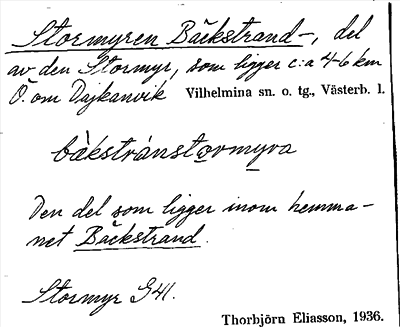 Stormyren Bäckstrand-, del
av den Stormyr, som ligger c:a 4-6 km
Ö. om Dajkanvik Vilhelmina sn. o. tg., Västerb. l.
bàkstránstormyra
Den del som ligger inom hemma-
net Bäckstrand.
Stormyr G41.
Thorbjörn Eliasson, 1936.